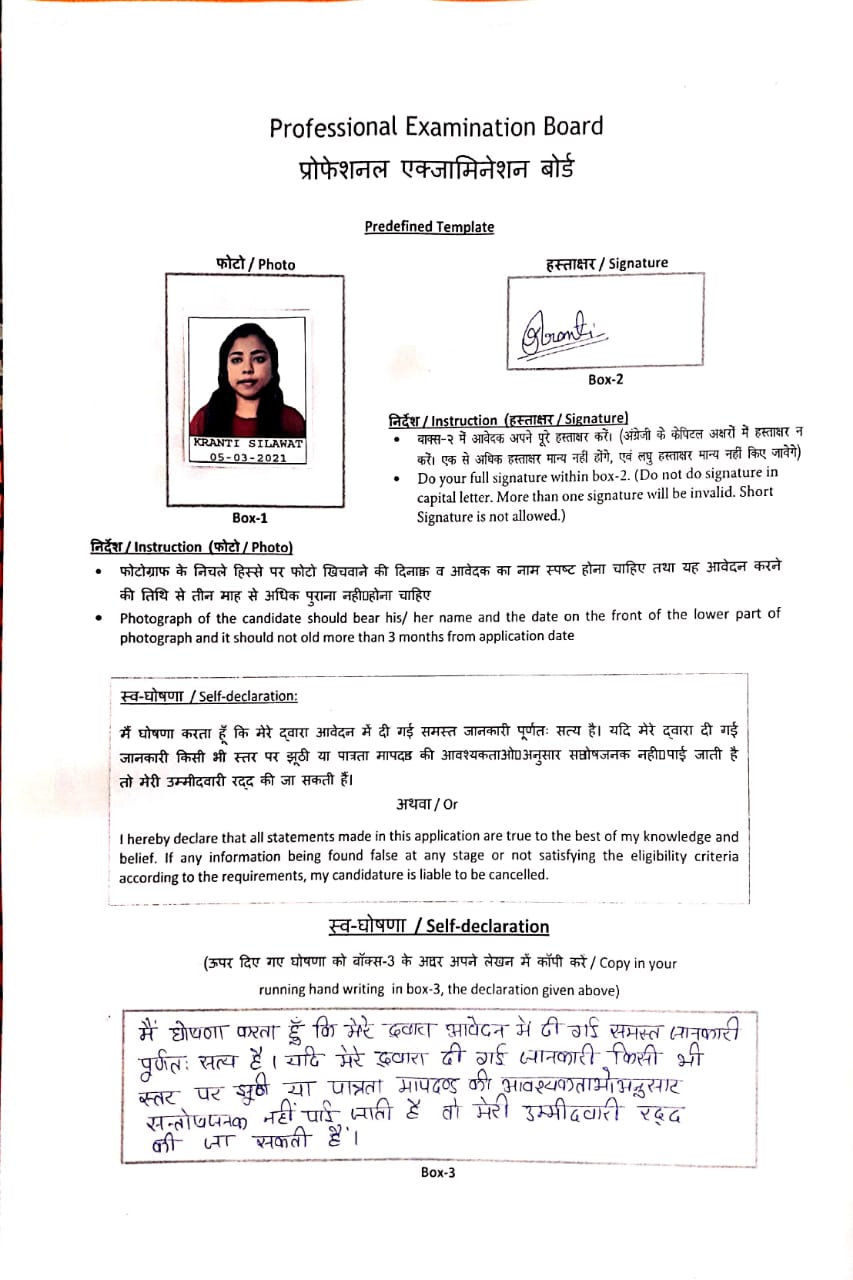 Professional Examination Board
प्रोफेशनल एक्जामिनेशन बोर्ड
Predefined Template
फोटो / Photo
हस्ताक्षर / Signature
Kranti
KRANTI SILAWAT
05-03-2021
Box-1
Box-2
निर्देश / Instruction (हस्ताक्षर / Signature)
• वाक्स-२ में आवेदक अपने पूरे हस्ताक्षर करें। (अंग्रेजी के केपिटल अक्षरों में हस्ताक्षर न
करें। एक से अधिक हस्ताक्षर मान्य नही होंगे, एवं लघु हस्ताक्षर मान्य नही किए जावेगे)
• Do your full signature within box-2. (Do not do signature in
capital letter. More than one signature will be invalid. Short
Signature is not allowed.)
निर्देश / Instruction (फोटो / Photo)
• फोटोग्राफ के निचले हिस्से पर फोटो खिचवाने की दिनाक व आवेदक का नाम स्पष्ट होना चाहिए तथा यह आवेदन करने
की तिथि से तीन माह से अधिक पुराना नही▯होना चाहिए
• Photograph of the candidate should bear his/ her name and the date on the front of the lower part of
photograph and it should not old more than 3 months from application date
स्व-घोषणा / Self-declaration:
मैं घोषणा करता हूँ कि मेरे द्वारा आवेदन में दी गई समस्त जानकारी पूर्णतः सत्य है। यदि मेरे द्वारा दी गई
जानकारी किसी भी स्तर पर झूठी या पात्रता मापदण्ड की आवश्यकताओ▯अनुसार सन्तोषजनक नही▯पाई जाती है
तो मेरी उम्मीदवारी रद्द की जा सकती हैं।
अथवा / Or
I hereby declare that all statements made in this application are true to the best of my knowledge and
belief. If any information being found false at any stage or not satisfying the eligibility criteria
according to the requirements, my candidature is liable to be cancelled.
स्व-घोषणा / Self-declaration
(ऊपर दिए गए घोषणा को बॉक्स-3 के अन्दर अपने लेखन में कॉपी करें / Copy in your
running hand writing in box-3, the declaration given above)
मैं घोषणा करता हूँ कि मेरे द्वारा आवेदन में दी गई समस्त जानकारी
पूर्णतः सत्य है। यदि मेरे द्वारा दी गई जानकारी किसी भी
स्तर पर झुठी या पात्रता मापदण्ड की आवश्यकताओअनुसार
सन्तोषजनक नहीं पाई जाती है तो मेरी उम्मीदवारी रद्द
की जा सकती हैं।
Box-3